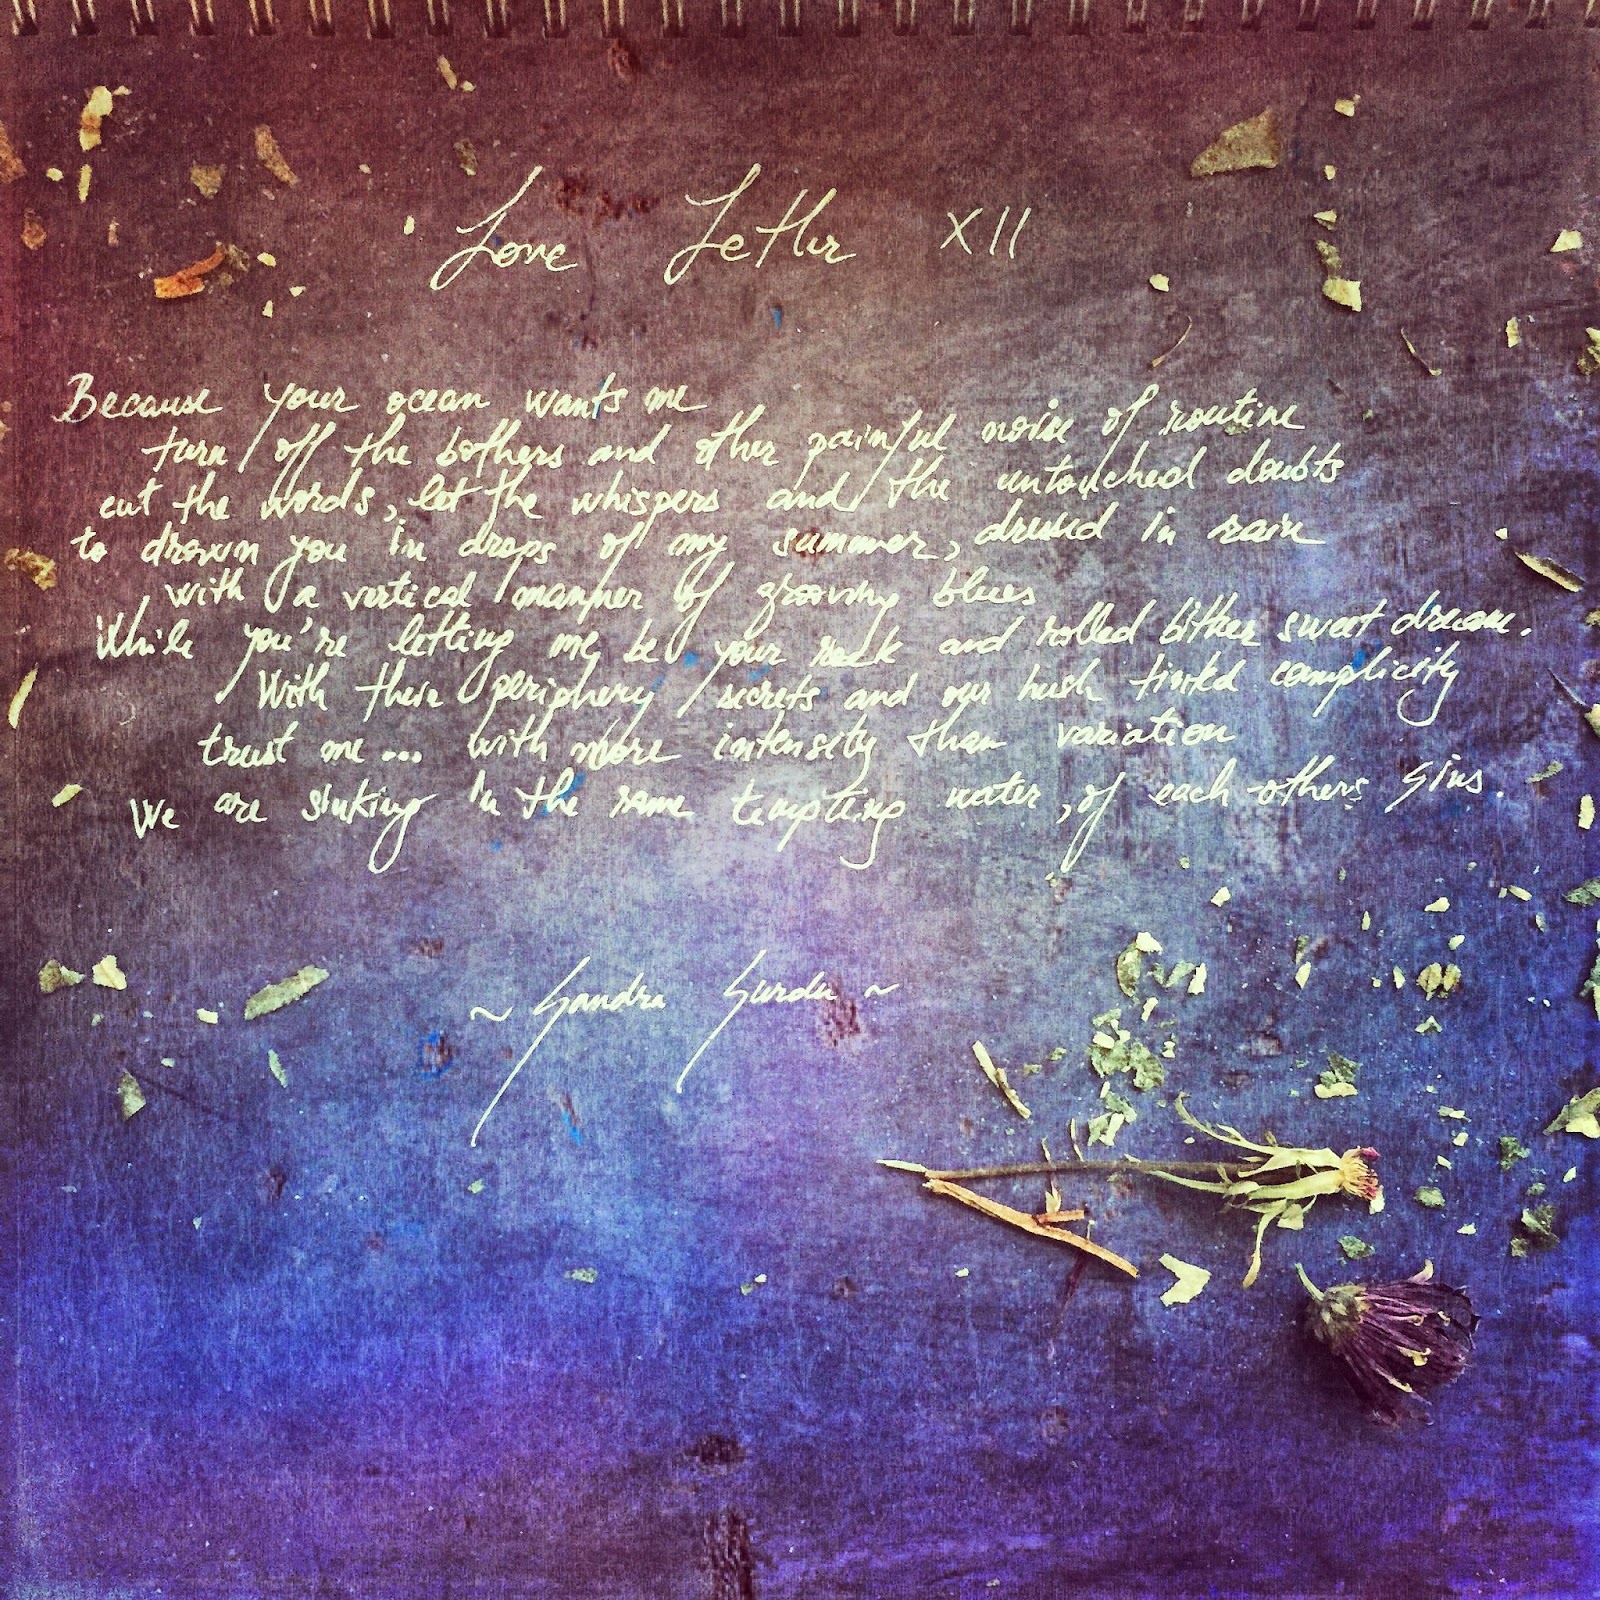 Love Letter XII
Because your ocean wants me
turn off the bothers and other painful noise of routine
cut the words, let the whispers and the untouched doubts
to drown you in drops of my summer, dressed in rain
with a vertical manner of grooving blues
While you're letting me be your rock and rolled bitter sweet dream.
With their periphery secrets and our hush tinted complicity
trust me... with more intensity than variation
We are sinking in the same tempting water, of each-others sins.
~ Sandra Surdu ~